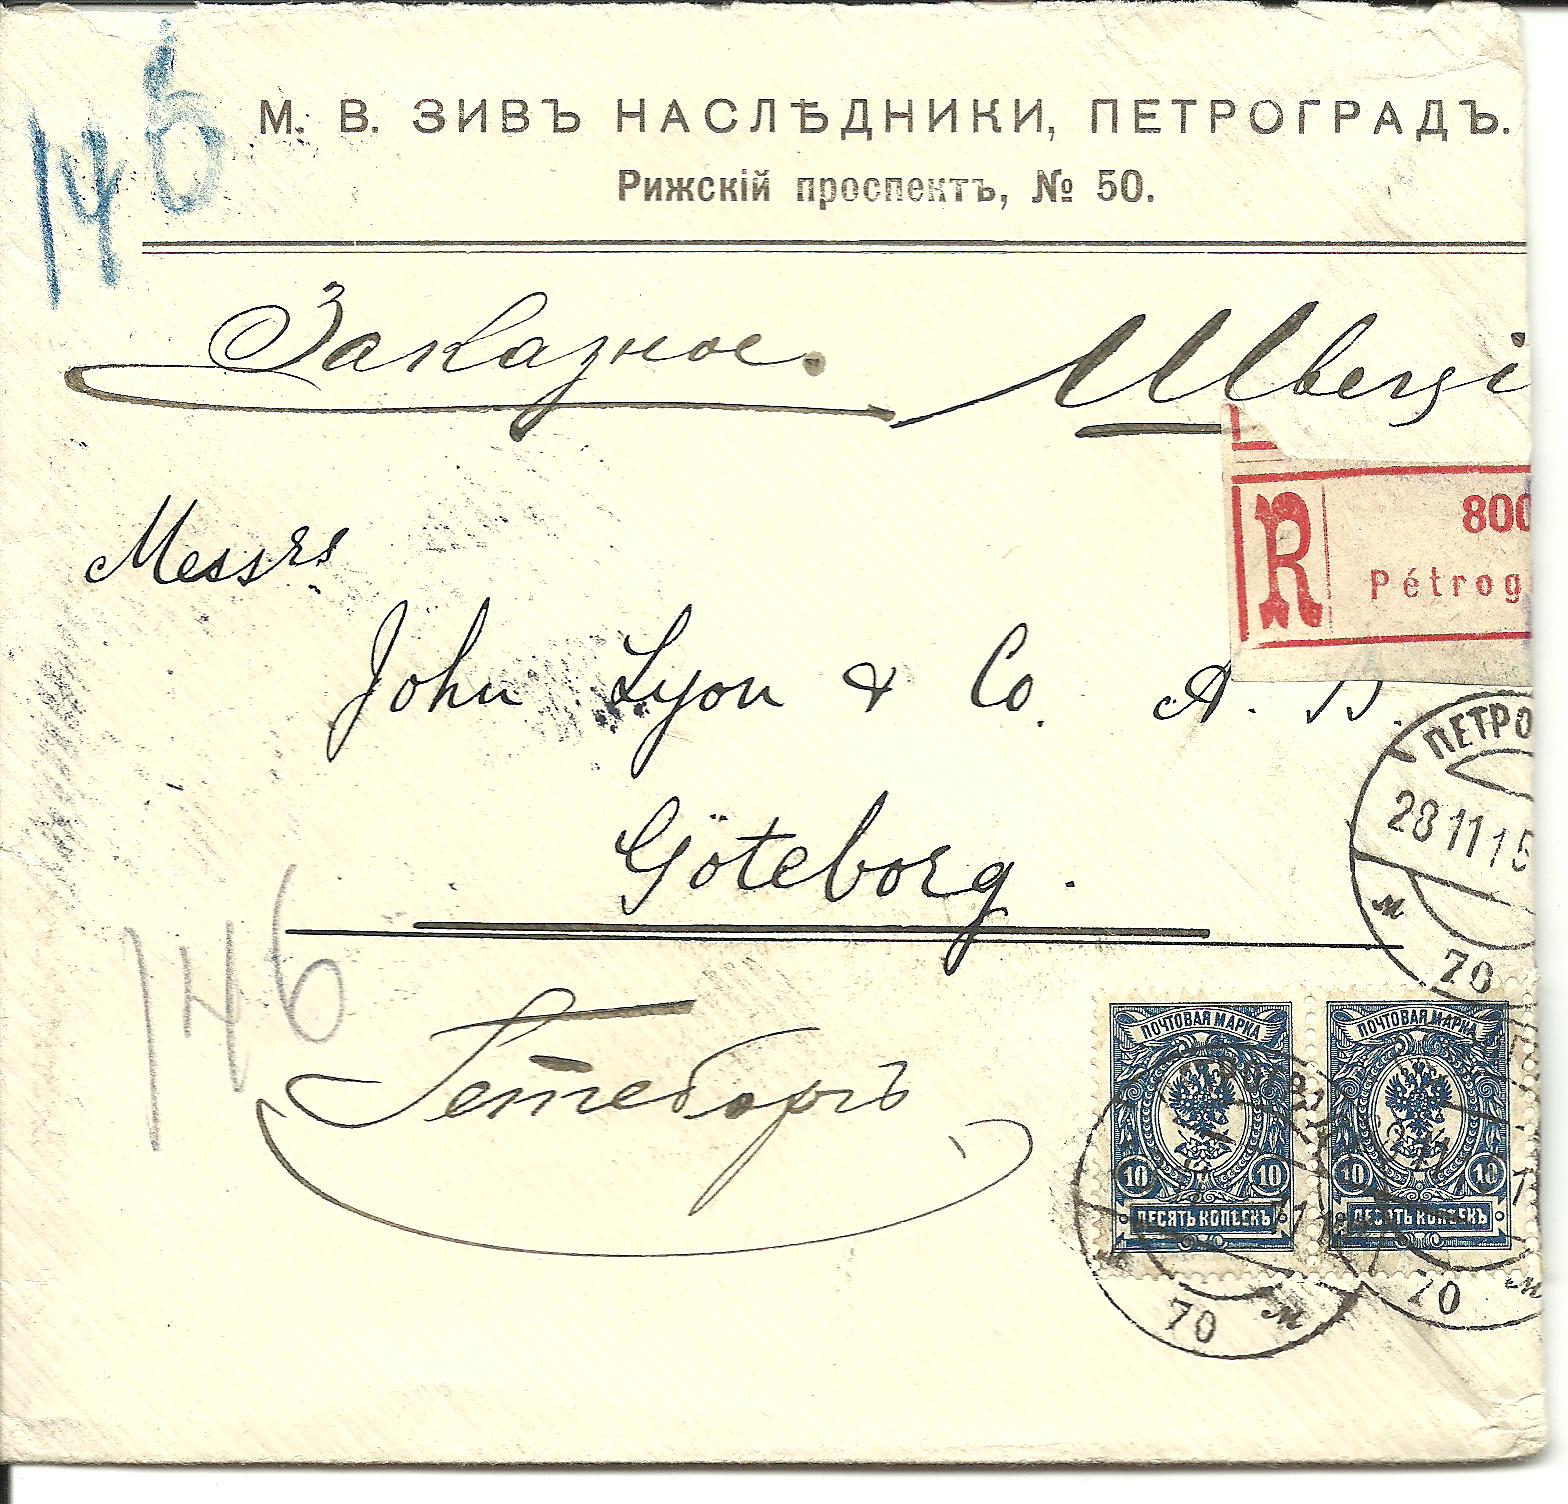 146
М. В. ЗИВЪ НАСЛѢДНИКИ, ПЕТРОГРАДЪ.
Рижскій проспектъ, № 50.
Заказное. Швеці
R 800
Pétrog
Messrs
John Lyon & Co. A. B.
Göteborg.
ПЕТРО
28 11 15
м
70
146
Гетеборгъ
ПОЧТОВАЯ МАРКА ПОЧТОВАЯ МАРКА
10 10 10 10
ДЕСЯТЬ КОПѢЕКЪ ДЕСЯТЬ КОПѢЕКЪ
70 м 70 м